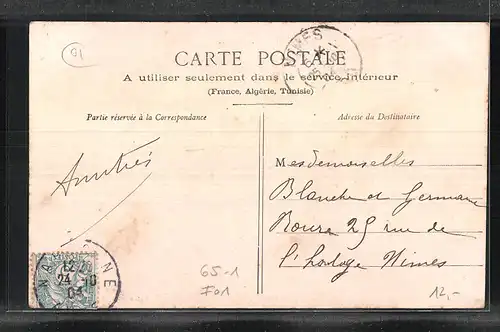 91
NIMES
CARTE POSTALE
A utiliser seulement dans le service intérieur
(France, Algérie, Tunisie)
Partie réservée à la Correspondance
Adresse du Destinataire
Amitiés
Mesdemoiselles
Blanche et Germaine
Roure 25 rue de
l'horloge Nimes
NE
24 10
65-1
F01
12,-